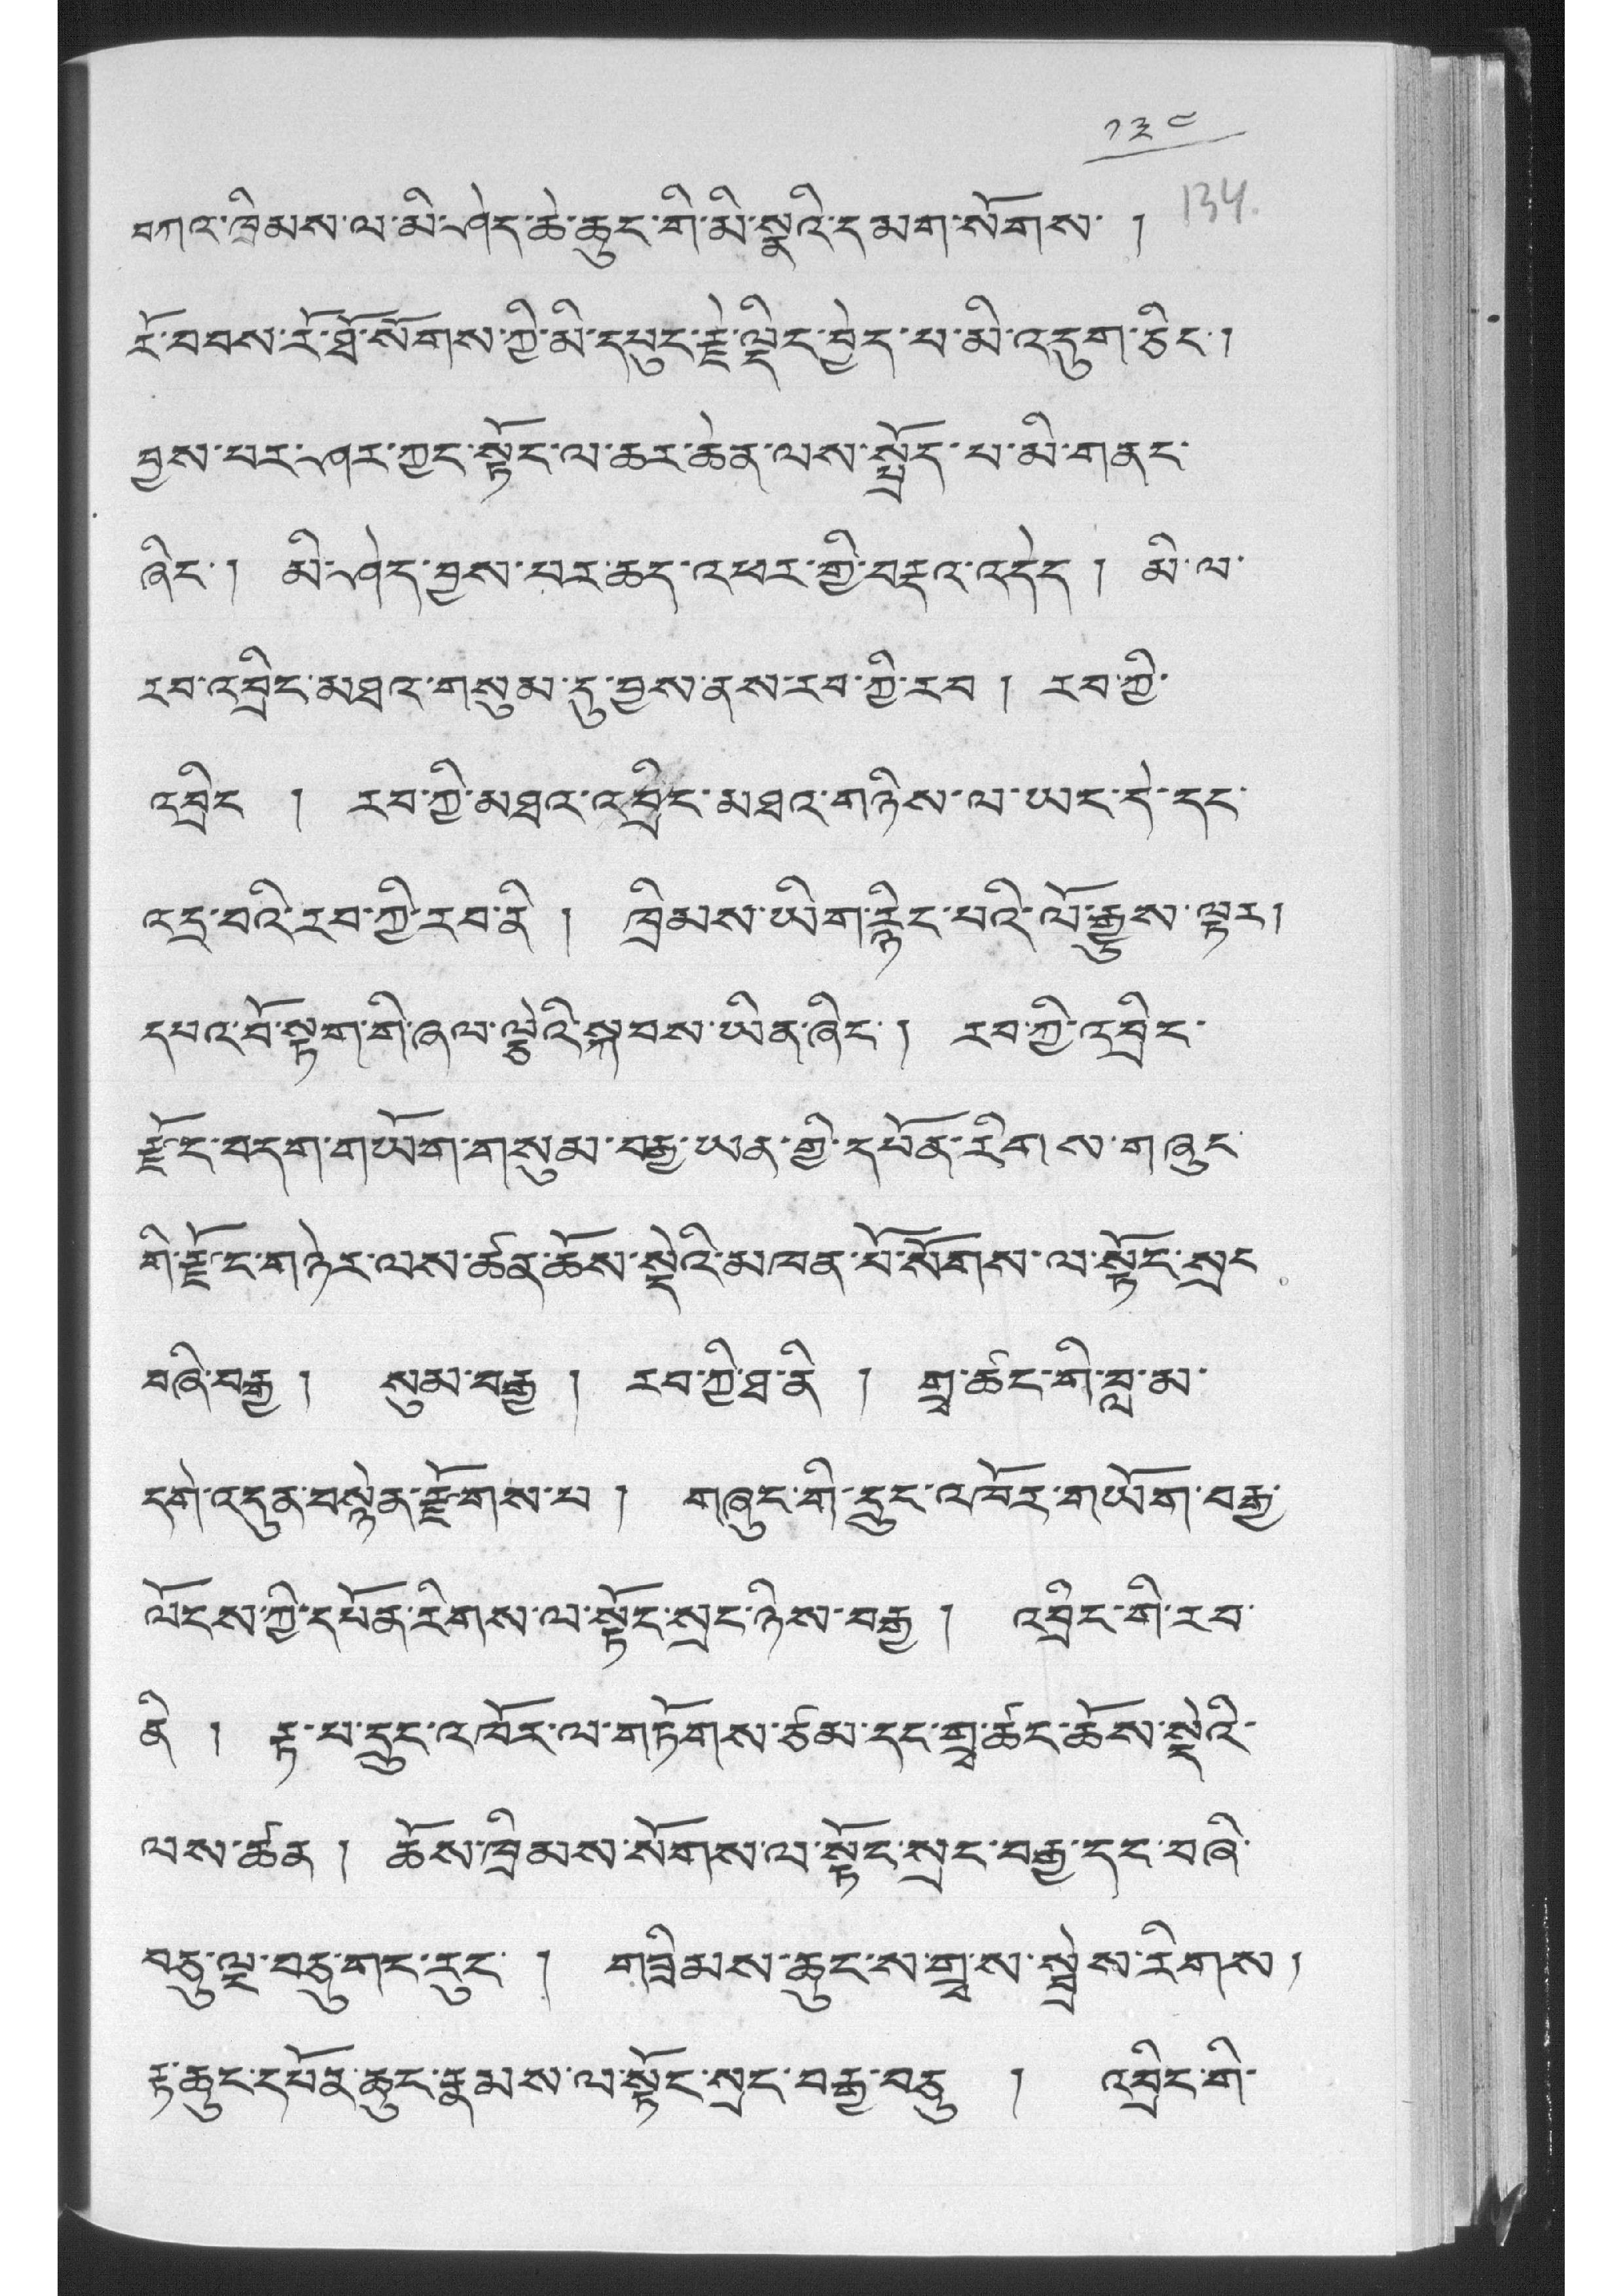 ༡༣༤
134.
བཀའ་ཁྲིམས་ལ་མི་ཤེད་ཆེ་ཆུང་གི་མི་སྣའི་དམག་སོགས །
རོ་བབས་རོ་ཐོ་སོགས་ཀྱི་མི་དཔུང་རྗེ་ལྡིང་བྱེད་པ་མི་འདུག་ཅིང་།
བྱས་པར་ཤར་ཀྱང་སྟོང་ལ་ཆར་ཆེན་ལས་སྤྲོད་པ་མི་གནང་
ཞིང་། མི་ཤེད་བྱས་པར་ཆད་འཕར་གྱི་བརྡའ་འདེད། མི་ལ་
རབ་འབྲིང་མཐའ་གསུམ་དུ་བྱས་ནས་རབ་ཀྱི་རབ། རབ་ཀྱི་
འབྲིང །རབ་ཀྱི་མཐའ་འབྲིང་མཐའ་གཉིས་ལ་ཡང་དེ་དང་
འདྲ་བའི་རབ་ཀྱི་རབ་ནི། ཁྲིམས་ཡིག་རྙིང་པའི་ལོ་རྒྱུས་ལྟར།
དཔའ་བོ་སྟག་གི་ཞལ་ལྕེའི་སྐབས་ཡིན་ཞིང་། རབ་ཀྱི་འབྲིང་
རྫོང་བདག་གཡོག་གསུམ་བརྒྱ་ཡན་གྱི་དཔོན་རིགས་གཞུང་
གི་རྫོང་གཉེར་ལས་ཚན་ཆོས་སྡེའི་མཁན་པོ་སོགས་ལ་སྟོང་སྲང
བཞི་བརྒྱ། སུམ་བརྒྱ། རབ་ཀྱི་ཐ་ནི། གྲྭ་ཚང་གི་བླ་མ་
དགེ་འདུན་བསྙེན་རྫོགས་པ། གཞུང་གི་དྲུང་འཁོར་གཡོག་བརྒྱ་
ལོངས་ཀྱི་དཔོན་རིགས་ལ་སྟོང་སྲང་ཉིས་བརྒྱ། འབྲིང་གི་རབ་
ནི། རྟ་པ་དྲུང་འཁོར་ལ་གཏོགས་ཙམ་དང་གྲྭ་ཚང་ཆོས་སྡེའི་
ལས་ཚན། ཆོས་ཁྲིམས་སོགས་ལ་སྟོང་སྲང་བརྒྱ་དང་བཞི་
བཅུ་ལྔ་བཅུ་གང་རུང་། གཟིམས་ཆུང་ས་གྲྭས་སྦྲེས་རིགས།
རྟ་ཆུང་དཔོན་ཆུང་རྣམས་ལ་སྟོང་སྲང་བརྒྱ་བཅུ། འབྲིང་གི་